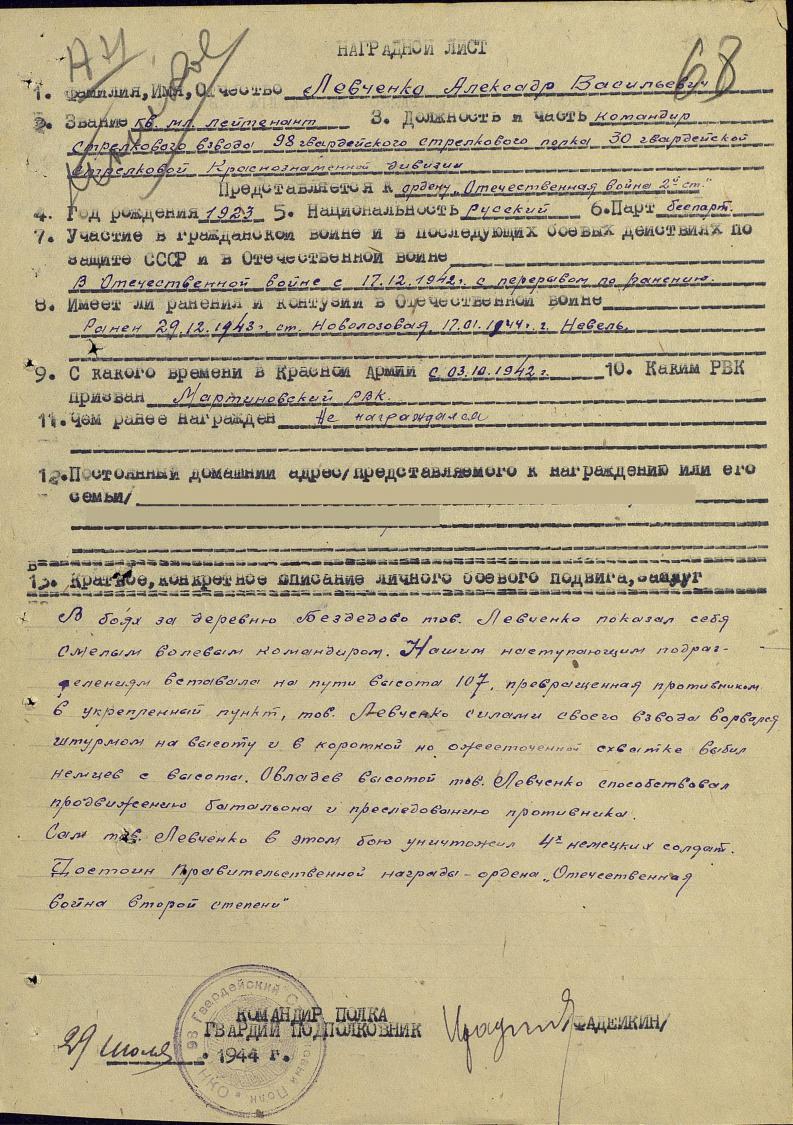 68
НАГРАДНОЙ ЛИСТ
1. Фамилия,Имя,Отчество Левченко Александр Васильевич
2. Звание гв. мл. лейтенант 3. Должность и часть командир
стрелкового взвода 98 гвардейского стрелкового полка 30 гвардейской
стрелковой Краснознаменной дивизии
Представляется к ордену „Отечественная война 2й ст."
4. Год рождения 1923 5. Национальность русский 6.Парт беспарт.
7. Участие в гражданской войне и в последующих боевых действиях по
защите СССР и в Отечественной войне
В Отечественной войне с 17.12.1942г. с перерывом по ранению.
8. Имеет ли ранения и контузии в Отечественной войне
Ранен 29.12.1943г. ст. Новолозовая, 17.01.1944г. г. Невель.
9. С какого времени в Красной Армии с 03.10.1942г. 10. Каким РВК
призван Мартиновский РВК.
11. Чем ранее награжден Не награждался
12. Постоянный домашний адрес/представляемого к награждению или его
семьи/
13. Краткое,конкретное описание личного боевого подвига,заслуг
В боях за деревню Бездедово тов. Левченко показал себя
смелым волевым командиром. Нашим наступающим подраз-
делениям вставала на пути высота 107, превращенная противником
в укрепленный пункт, тов. Левченко силами своего взвода ворвался
штурмом на высоту и в короткой но ожесточенной схватке выбил
немцев с высоты. Овладев высотой тов. Левченко способствовал
продвижению батальона и преследованию противника.
Сам тов. Левченко в этом бою уничтожил 4х немецких солдат.
Достоин Правительственной награды - ордена „Отечественная
война второй степени"
КОМАНДИР ПОЛКА
ГВАРДИИ ПОДПОЛКОВНИК /ФАДЕЙКИН/
29 июля 1944 г.
98 Гвардейский Стрелковый Полк